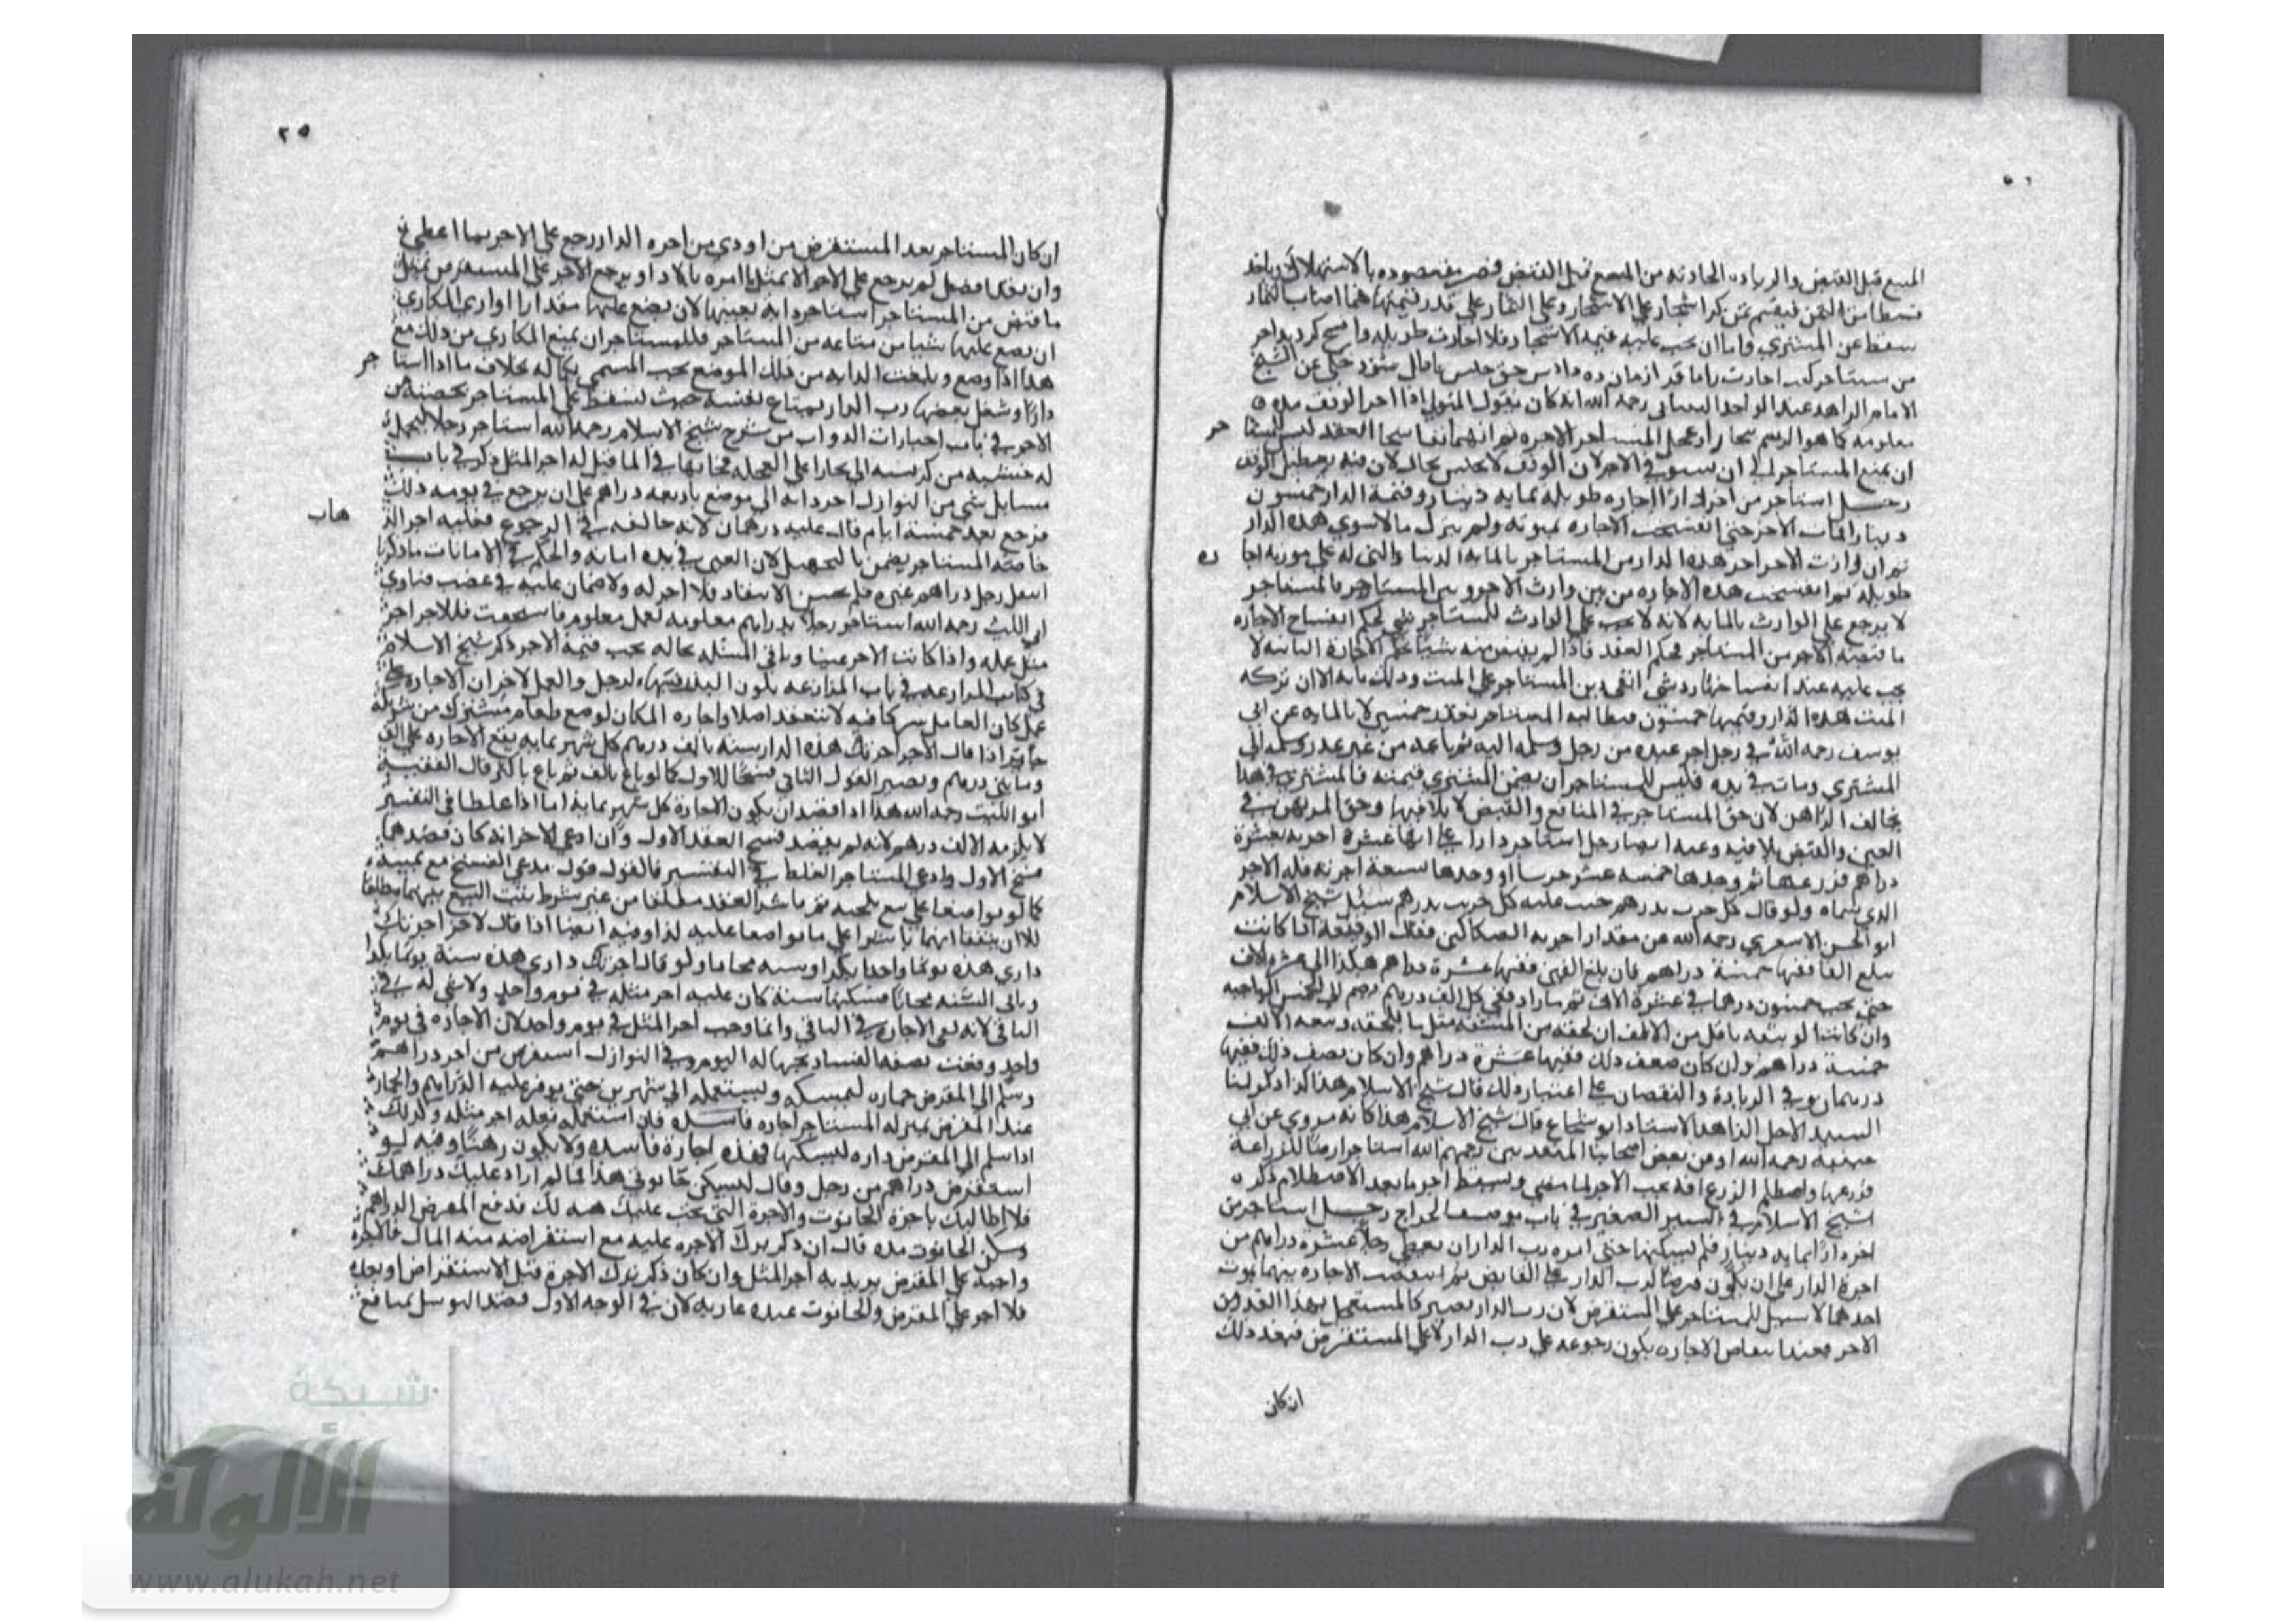 المبيع قبل القبض والزياده الحادثه من المبيع قبل القبض مقصوده بالاستهلاك وياخذ
قسطا من الثمن فيقسم ثمن الاشجار على الاشجار وعلى الثمار على قدر قيمتها فما اصاب الثمار
سقط عن المشتري واما ان يجب عليه قيمة الاشجار فلا اجارت طويله
الامام الزاهد عبد الواحد رحمه الله انه كان يقول المتولي اذا اجر الوقف مده
معلومه كما هو الرسم وعجل المستاجر الاجره ثم انهما تفاسخا العقد ليس
ان يمنع المستاجر الى ان يستوفي الاجر لان الوقف لا يحبس بحال لان فيه تعطيل الوقف
رجل استاجر من اخر دارا اجاره طويله بمايه دينار وقيمة الدار خمسون
دينارا فمات الاجر حتى انفسخت الاجاره بموته ولم يترك مالا سوى هذه الدار
ثم ان وارث الاجر اجر هذه الدار من المستاجر بالمايه الدينار التي له على مورثه اجا
طويله ثم انفسخت هذه الاجاره من بين وارث الاجر وبين المستاجر فالمستاجر
لا يرجع على الوارث بالمايه لانه لا يجب على الوارث للمستاجر شي بحكم انفساخ الاجاره
ما قبضه الاجر من المستاجر بحكم العقد فاذا لم يقبض منه شيا في الاجارة الثانيه لا
يجب عليه عند انفساخها رد شي انتفى دين المستاجر على الميت وذلك مايه الا ان تركه
الميت هذه الدار وقيمتها خمسون فيطالبه المستاجر بقدر خمسين لا بالمايه عن ابي
يوسف رحمه الله في رجل اجر عبده من رجل وسلمه اليه ثم باعه من غير عذر وسلمه الى
المشتري ومات في يده فليس للمستاجر ان يضمن المشتري قيمته فالمشتري في هذا
يخالف الراهن لان حق المستاجر في المنافع والقبض لا يلاقيها وحق المرتهن في
العين والقبض يلاقيه وعنه ايضا رجل استاجر دارا على انها عشرة اجربه بعشرة
دراهم فزرعها ثم وجدها خمسه عشر جريبا او وجدها تسعة اجربه فله الاجر
الذي سماه ولو قال كل جريب بدرهم حسب عليه كل جريب بدرهم سئل شيخ الاسلام
ابو الحسن رحمه الله عن مقدار اجربه الصكاكين فقال الوثيقة اذا كانت
تبلغ الفا ففيها خمسة دراهم فان بلغ الفين ففيها عشرة دراهم هكذا الى عشرة الاف
حتى يجب خمسون درهما في عشرة الاف ثم ما زاد ففي كل الف درهم درهم
وان كانت الوثيقه باقل من الالف ان لحقه من المشقه مثل ما يلحقه وثيقه الالف
خمسة دراهم وان كان ضعف ذلك ففيها عشرة دراهم وان كان نصف ذلك ففيها
درهمان وفي الزيادة والنقصان على اعتبار ذلك قال شيخ الاسلام هذا كذا ذكر لنا
السيد الاجل الزاهد الاستاد ابو شجاع قال شيخ الاسلام هذا كانه مروي عن ابي
حنيفه رحمه الله او من بعض اصحابنا المتقدمين رحمهم الله استاجر ارضا للزراعة
فزرعها واصطلم الزرع افه يجب الاجر لما مضى وسقط اجر ما بعد الاصطلام ذكر
شيخ الاسلام في السير الصغير في باب بوضع الخراج رجل استاجر من
اخر دارا بمايه دينار فلم يسكنها حتى امره رب الدار ان يعطي رجلا عشرة دراهم من
اجرة الدار على ان يكون قرضا لرب الدار على القابض ثم انتقضت الاجاره بينهما بموت
احدهما لا سبيل للمستاجر على المستقرض لان رب الدار يصير كالمستعجل بهذا القدر من
الاجر فعند انتقاض الاجاره يكون رجوعه على رب الدار لا على المستقرض فبعد ذلك
ان كان
٢٥
ان كان المستاجر بعد المستقرض من اودي من اجره الدار رجع على الاجر بما اعطى
وان بقي افضل لم يرجع على الاجر الا بمثل ما امره بالاداء ويرجع الاجر على المستقرض بمثل
ما قبض من المستاجر استاجر دابه بعينها لان يضع عليها مقدارا اوارى المكاري
ان يضع عليها شيا من متاعه مع المستاجر فللمستاجر ان يمنع المكاري من ذلك مع
هذا اذا وضع وبلغت الدابه من ذلك الموضع يجب المسمى بكماله بخلاف ما اذا استا
دارا وشغل بعضها رب الدار بمتاع نفسه حيث يسقط عن المستاجر بحصته من
الاجر في باب اجارات الدواب من شرح شيخ الاسلام رحمه الله استاجر رجلا ليحمل
له خشبه الى بخارا على العجله فجابها في الماء قيل له اجر المثل ذكر في باب
مسايل شتى من النوازل اجر دابه الى موضع باربعه دراهم على ان يرجع في يومه ذلك
فرجع بعد خمسة ايام قال عليه درهمان لانه خالفه في الرجوع فعليه اجر الذ
هاب
خاصة المستاجر يضمن بالتجهيل لان العين في يده امانه والحكم في الامانات ما ذكرنا
انتقد رجل دراهم غيره فلم يحسن الانتقاد فلا اجر له ولا ضمان عليه في غصب فتاوى
ابي الليث رحمه الله استاجر رجلا بدراهم معلومه لعمل معلوم فاستحقت فللاجير اجر
مثل عمله واذا كانت الاجر عينا وباقي المسئله بحاله يجب قيمة الاجر ذكر شيخ الاسلام
في كتاب المزارعه في باب المزارعه يكون البذر فيها لرجل والعمل لاخر ان الاجاره على
عمل كان العامل شريكا فيه لا تنعقد اصلا واجاره المكان لوضع طعام مشترك من شريكه
جايز اذا قال لاخر اجرتك هذه الدار سنه بالف درهم كل شهر بمايه يقع الاجاره على الف
ومايتي درهم ويصير القول الثاني فسخا للاول كما لو باع بالف ثم باع باكثر قال الفقيه
ابو الليث رحمه الله هذا اذا قصدا ان يكون الاجارة كل شهر بمايه اما اذا غلطا في التفسير
لا يلزمه الا الف درهم لانه لم يقصد فسخ العقد الاول وان ادعى الاجر انه كان قصدهما
فسخ الاول وادعى المستاجر الغلط في التفسير فالقول قول مدعي الفسخ مع يمينه
كما لو تواضعا على بيع تلجيه ثم باشرا العقد مطلقا من غير شرط يثبت البيع بينهما مطلقا
الا ان يتفقا انهما باشرا على ما تواضعا عليه كذا وفيه ايضا اذا قال لاخر اجرتك
داري هذه يوما واحدا بكذا وسنه مجانا ولو قال اجرتك داري هذه سنة يوما بكذا
وباقي السنه مجانا فسكنها سنة كان عليه اجر مثله في يوم واحد ولا شي له في
الباقي لانه نفى الاجاره في الباقي وانما وجب اجر المثل في يوم واحد لان الاجاره في يوم
واحد وقعت بصفه الفساد لجهالة اليوم وفي النوازل استقرض من اخر دراهم
وسلم الى المقرض حماره ليمسكه ويستعمله الى شهرين حتى يوفر عليه الدراهم والحمار
عند المقرض بمنزله المستاجر اجاره فاسده فان استعمله فعليه اجر مثله وكذلك
اذا سلم الى المقرض داره ليسكنها فهذه اجارة فاسده ولا يكون رهنا وفيه لو
استقرض دراهم من رجل وقال ليسكن حانوتي هذا فما لم اراد عليك دراهمك
فلا اطالبك باجرة الحانوت والاجرة التي تجب عليك هبه لك فدفع المقرض الدراهم
وسكن الحانوت مده قال ان ذكر ترك الاجره عليه مع استقراضه منه المال فالاجره
واجبة على المقرض يريد به اجر المثل وان كان ذكر ترك الاجرة قبل الاستقراض او بعده
فلا اجر على المقرض والحانوت عنده عاريه لان في الوجه الاول قصد التوسل بمنافع
شبكة
الألوكة
www.alukah.net